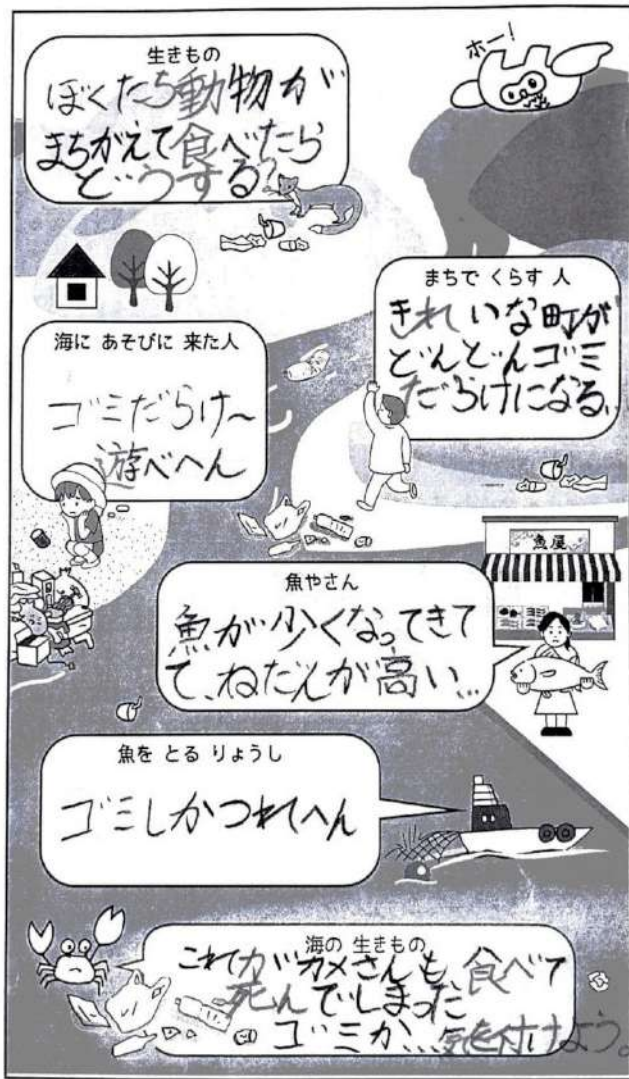 ホー!
生きもの
ぼくたち動物が
まちがえて食べたら
どうする?
まちで くらす 人
きれいな町が
どんどんゴミ
だらけになる、
海に あそびに 来た人
ゴミだらけ〜
遊べへん
魚屋
魚やさん
魚が少くなってきて
て、ねだんが高い...
魚を とる りょうし
ゴミしかつれへん
海の 生きもの
これがカメさんも食べて
死んでしまった
ゴミか...気を付けよう。